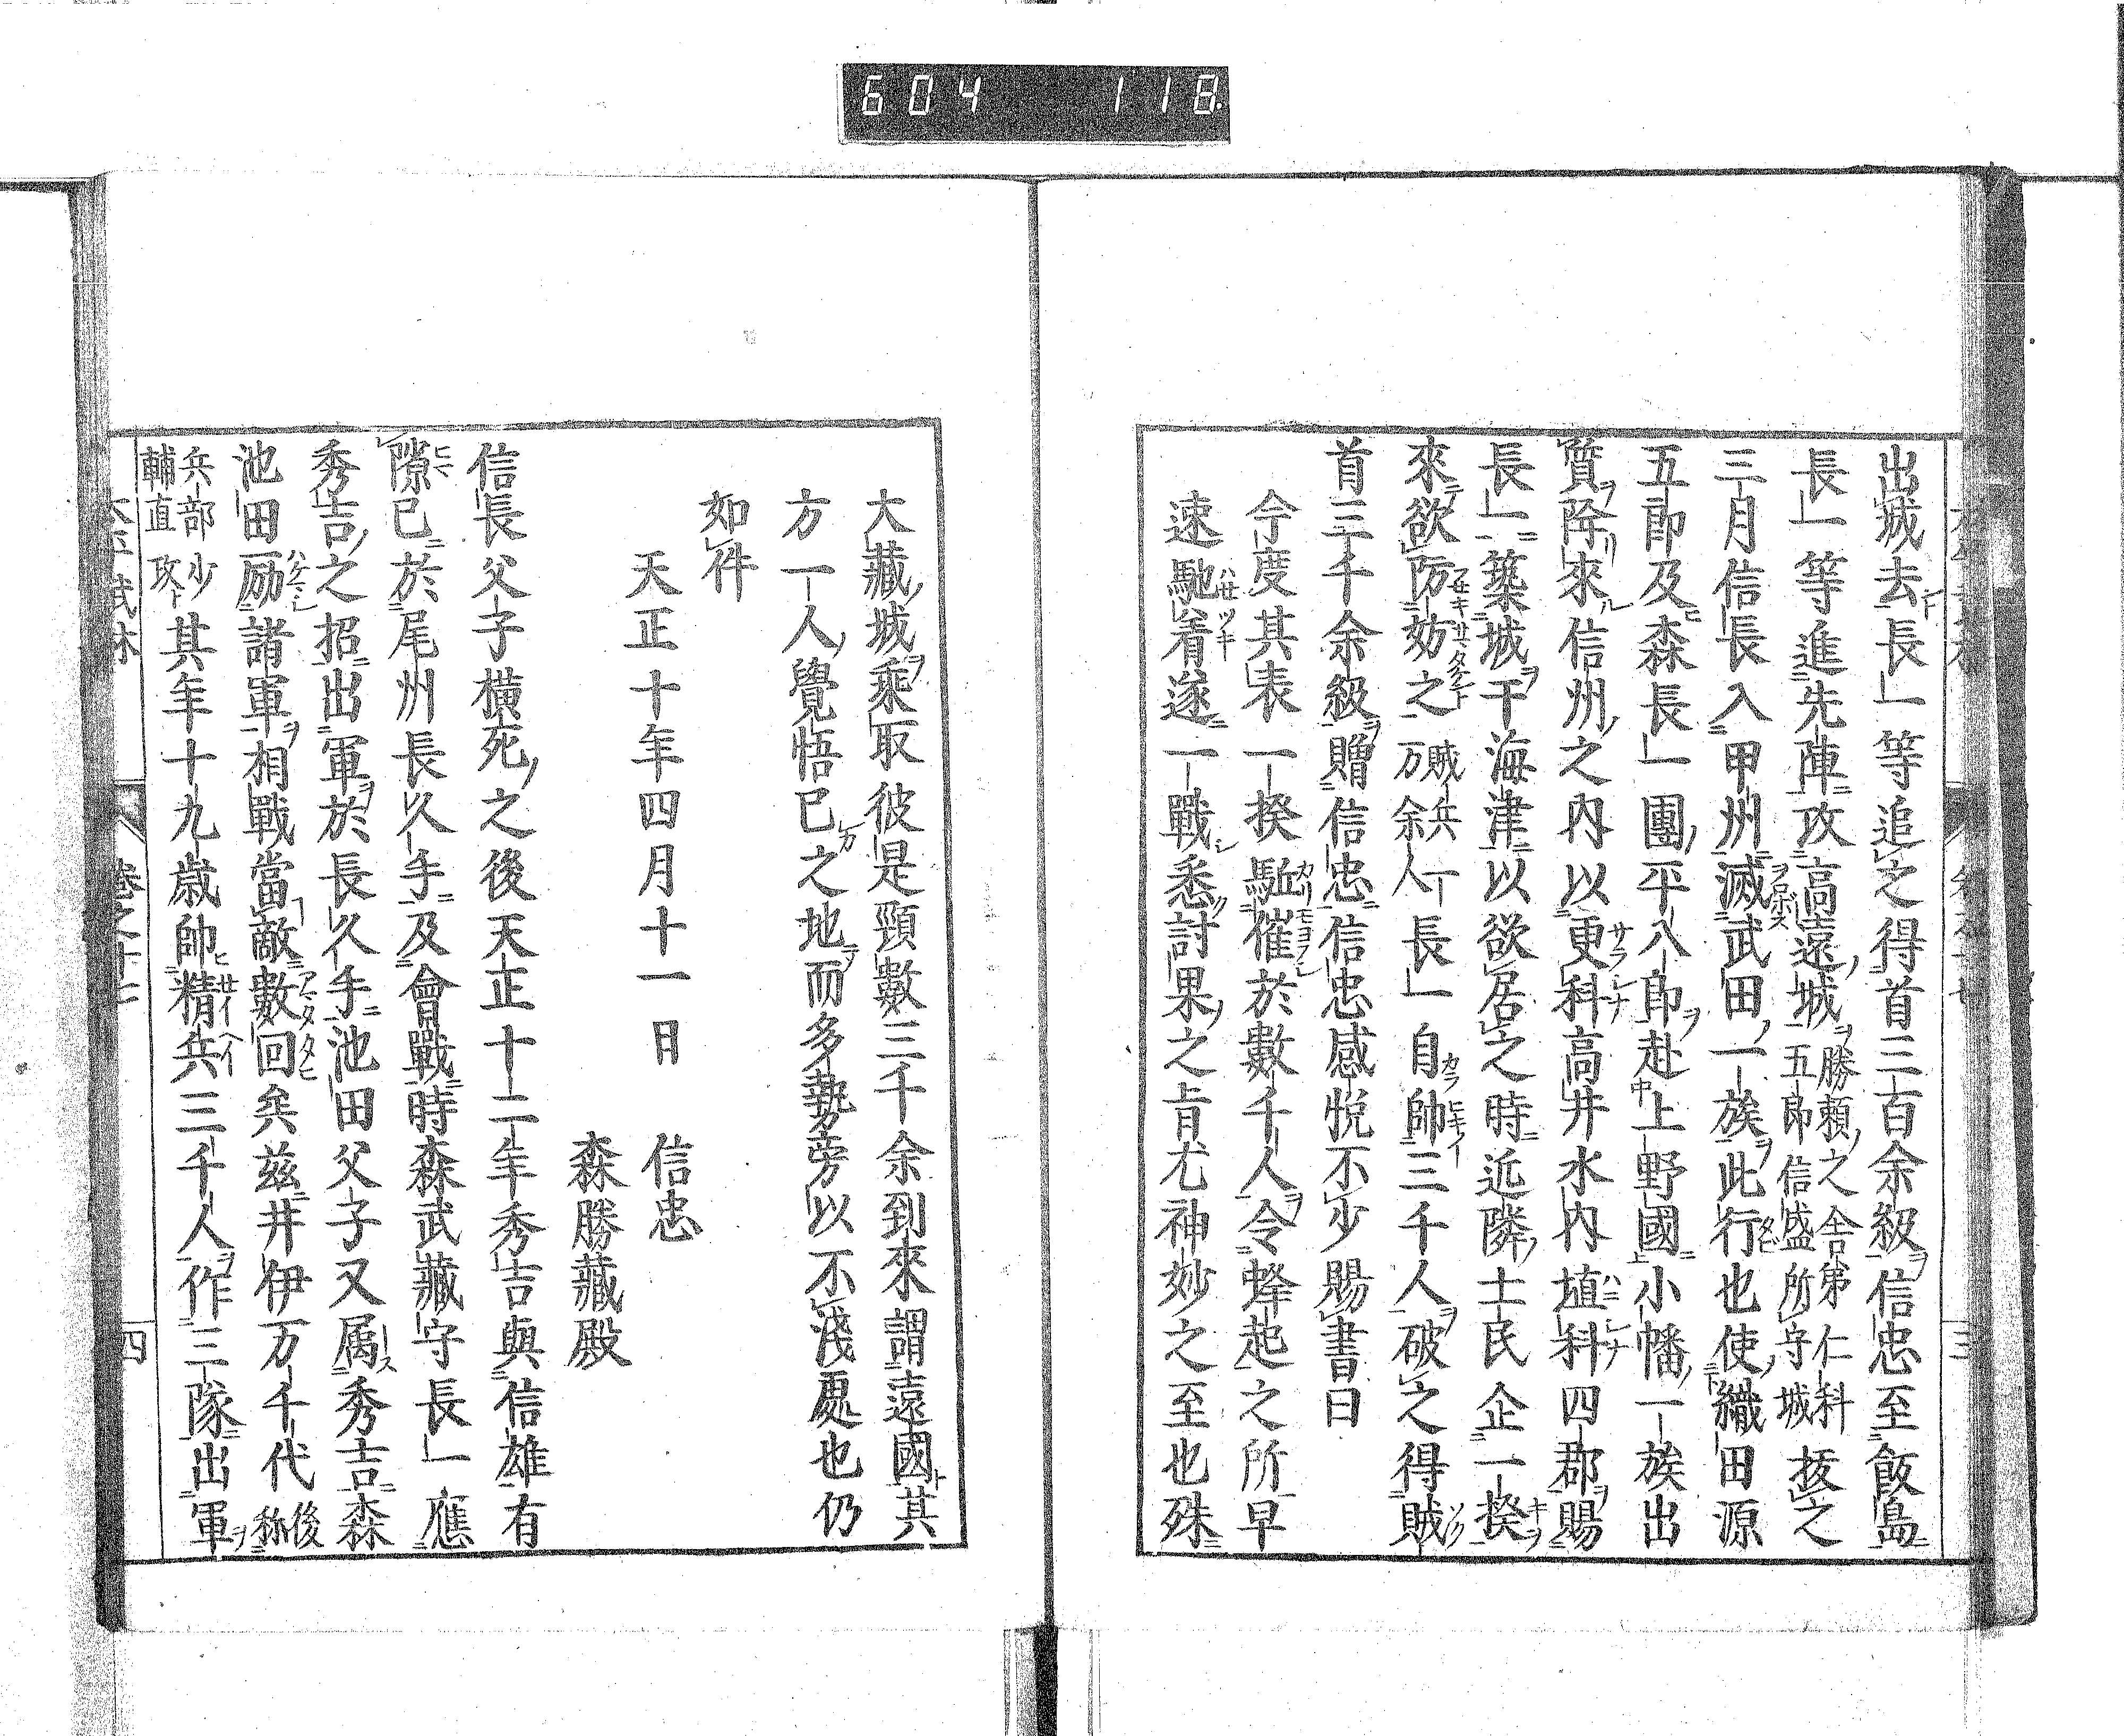 604 118
出城去長一等追之得首三百余級信忠至飯島
長一等進先陣攻高遠城勝頼之舎弟仁科五郎信盛所守城抜之
三月信長入甲州滅武田一族此行也使織田源
五郎及森長一團平八郎赴上野國小幡一族出
質降來信州之内以更科高井水内埴科四郡賜
長一築城于海津以欲居之時近隣士民企一揆
來欲防妨之賊兵一万余人長一自帥三千人破之得賊
首三千余級贈信忠信忠感悦不少賜書曰
今度其表一揆駈催於數千人令蜂起之所早
速馳着遂一戰悉討果之旨尤神妙之至也殊
大藏城乘取彼是頸數三千余到來謂遠國其
方一人覺悟已之地而多勢旁以不淺處也仍
如件
天正十年四月十一日 信忠
森勝藏殿
信長父子横死之後天正十二年秀吉與信雄有
隙已於尾州長久手及會戰時森武藏守長一應
秀吉之招出軍於長久手池田父子又属秀吉森
池田励諸軍相戰當敵數回矣茲井伊万千代後称
兵部少輔直政其年十九歳帥精兵三千人作三隊出軍
卷之十七
四